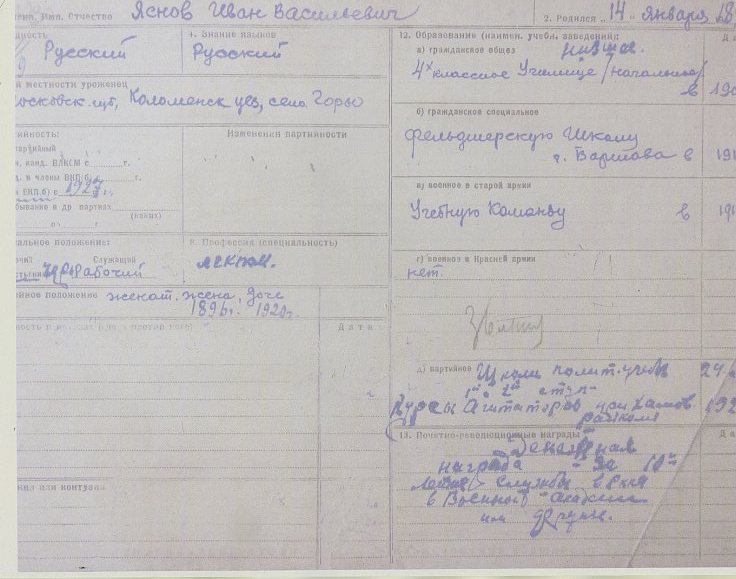 Имя, Отчество Яснов Иван Васильевич
2. Родился „ 14 „ января 18
Русский
4. Знание языков
Русский
местности уроженец
Московск. губ, Коломенск уез, село Горы
Изменения партийности
канд. ВЛКСМ с г.
в члены ВКП(б) г.
ВКП(б) с 1927 г.
бывание в др партиях
(каких)
положение:
Служащий
Рабочий
8. Профессия (специальность)
положение женат. жена, дочь
1896г. 1920г.
Дата
или контузии
12. Образование (наимен. учебн. заведения):
а) гражданское общее низшее.
4х классное Училище /начальное/
в 190
б) гражданское специальное
Фельдшерскую Школу
г. Варшава в 191
в) военное в старой армии
Учебную Команду в 191
г) военное в Красной армии
нет.
д) партийное Школы полит. учебы 24
1й и 2й ступ-
Курсы Агитаторов при Хамов 192
райкоме
13. Почетно-революционные награды:
Денежная
награда - за 10ти
службы в РККА
в Военной Академии
им Фрунзе.